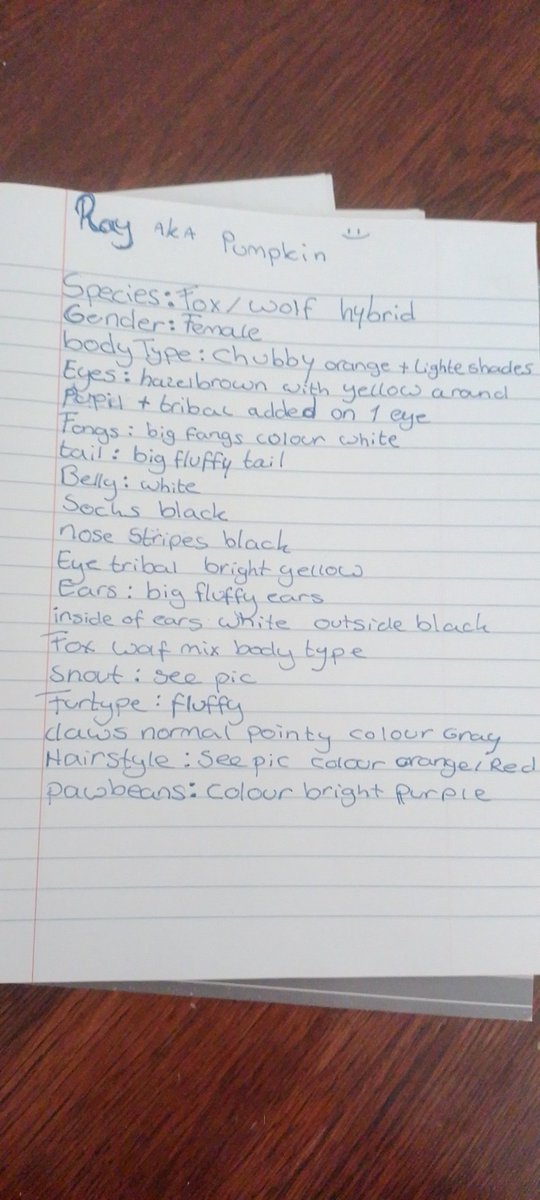 Ray AKA Pumpkin :)
Species: Fox/wolf hybrid
Gender: Female
body Type: Chubby orange + lighte shades
Eyes: hazelbrown with yellow around
pupil + tribal added on 1 eye
Fangs: big fangs colour white
tail: big fluffy tail
Belly: white
Socks black
nose Stripes black
Eye tribal bright yellow
Ears: big fluffy ears
inside of ears white outside black
Fox wolf mix body type
Snout: see pic
Furtype: fluffy
claws normal pointy colour Gray
Hairstyle: See pic colour orange/Red
pawbeans: colour bright purple